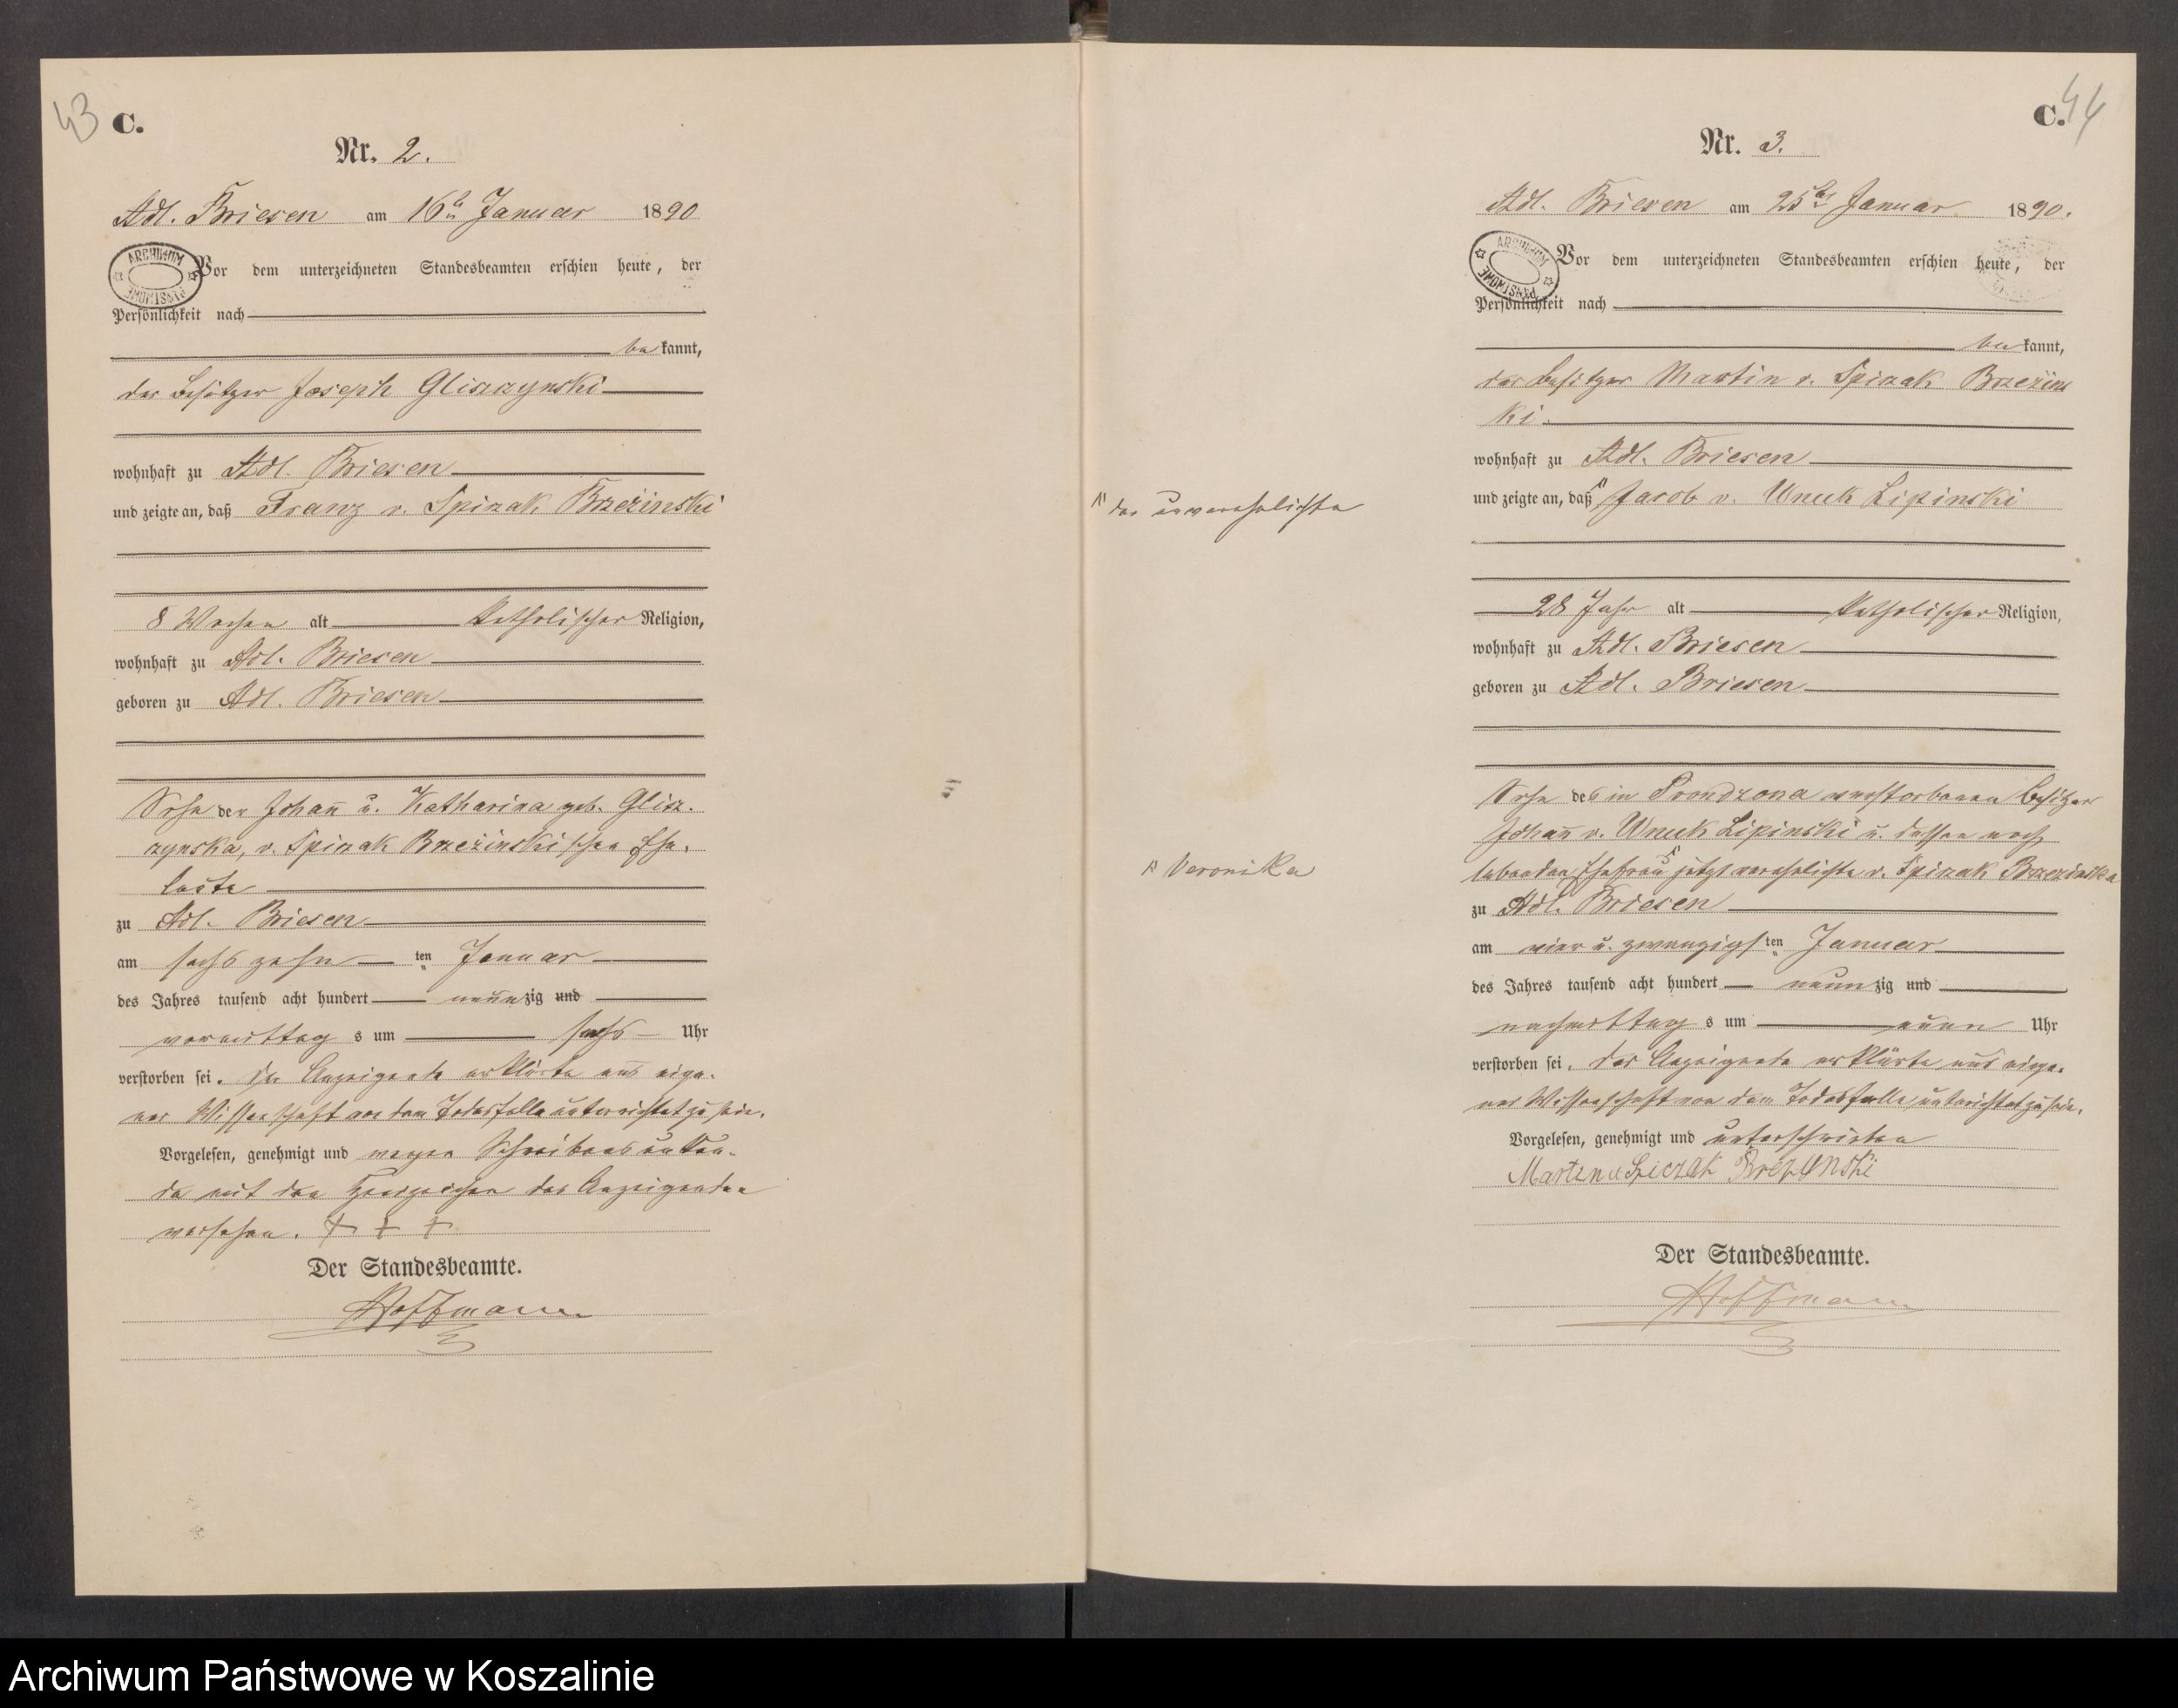 43 C.
Nr. 2.
Adl. Briesen am 16ten Januar 1890
ARCHIWUM PAŃSTWOWE
Vor dem unterzeichneten Standesbeamten erschien heute, der
Persönlichkeit nach
be kannt,
der Besitzer Joseph Gliszzynski
wohnhaft zu Adl. Briesen
und zeigte an, daß Franz v. Spizak Brzeżinski
8 Wochen alt Katholischer Religion,
wohnhaft zu Adl. Briesen
geboren zu Adl. Briesen
Sohn der Johann̄ u. Katharina geb. Glisz-
zynska, v. Spizak Brzeżinskischen Ehe-
leute
zu Adl. Briesen
am sechszehn ten Januar
des Jahres tausend acht hundert neun zig und
vormittag s um sechs Uhr
verstorben sei. Der Anzeigende erklärte aus eige-
ner Wissenschaft von dem Todesfalle unterrichtet zu sein.
Vorgelesen, genehmigt und wegen Schreibensunkun-
de mit den Handzeichen des Anzeigenden
versehen. + + +
Der Standesbeamte.
Hoffmann
C. 44
Nr. 3.
Adl. Briesen am 25ten Januar 1890.
ARCHIWUM PAŃSTWOWE
Vor dem unterzeichneten Standesbeamten erschien heute, der
Persönlichkeit nach
be kannt,
der Besitzer Martin v. Spizak Brzeżins
ki.
wohnhaft zu Adl. Briesen
und zeigte an, daß Jacob v. Wnuk Lipinski
der unverehelichte
28 Jahr alt Katholischer Religion,
wohnhaft zu Adl. Briesen
geboren zu Adl. Briesen
Sohn des in Prondzona verstorbenen Besitzer
Johann̄ v. Wnuk Lipinski u. dessen noch
lebenden Ehefrau jetzt verehelichte v. Spizak Brzezinska
Veronika
zu Adl. Briesen
am vier u. zwanzigs ten Januar
des Jahres tausend acht hundert neun zig und
nachmittag s um neun Uhr
verstorben sei. Der Anzeigende erklärte aus eige-
ner Wissenschaft von dem Todesfalle unterrichtet zu sein.
Vorgelesen, genehmigt und unterschrieben
Der Standesbeamte.
Hoffmann
Archiwum Państwowe w Koszalinie